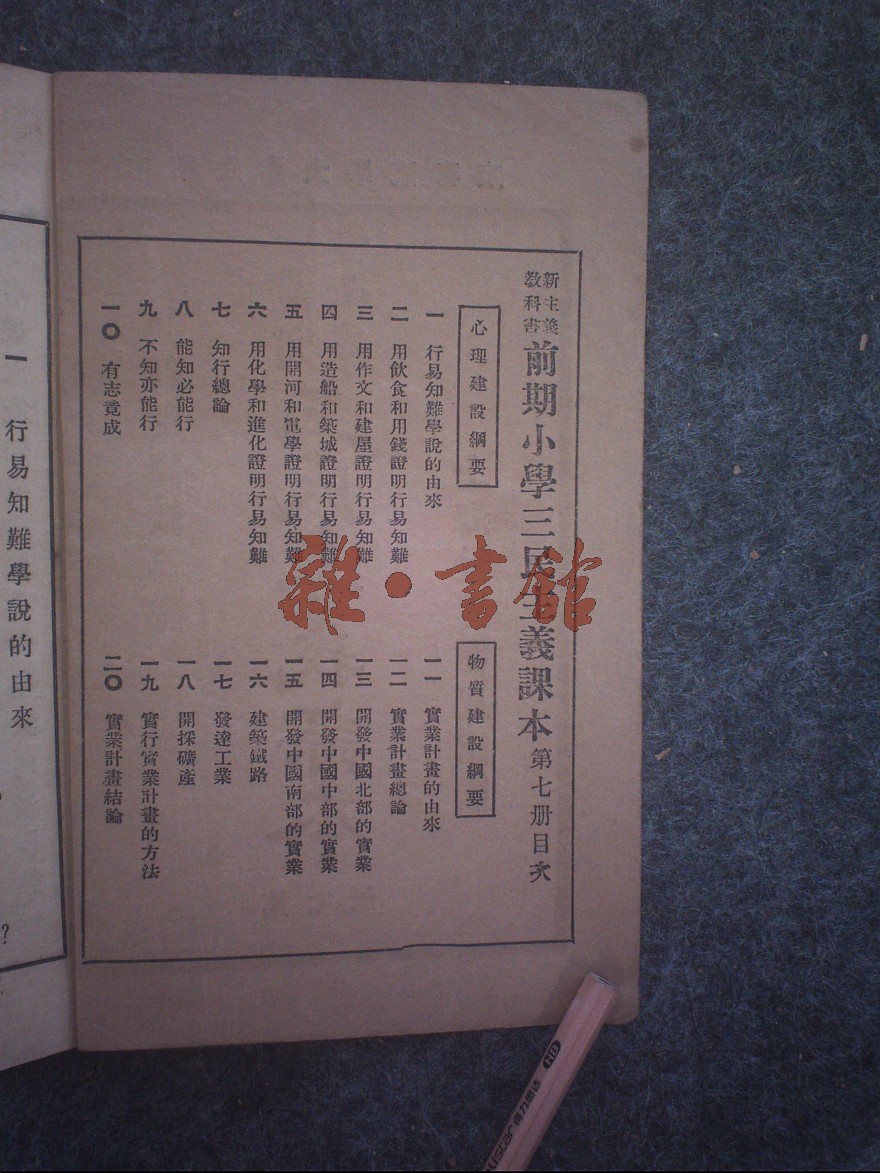 新主義
教科書
前期小學三民主義課本 第七册目次
心理建設綱要
一 行易知難學說的由來
二 用飲食和用錢證明行易知難
三 用作文和建屋證明行易知難
四 用造船和築城證明行易知難
五 用開河和電學證明行易知難
六 用化學和進化證明行易知難
七 知行總論
八 能知必能行
九 不知亦能行
一〇 有志竟成
物質建設綱要
一一 實業計畫的由來
一二 實業計畫總論
一三 開發中國北部的實業
一四 開發中國中部的實業
一五 開發中國南部的實業
一六 建築鐵路
一七 發達工業
一八 開採礦產
一九 實行實業計畫的方法
二〇 實業計畫結論
一 行易知難學說的由來
?
雜·書館
HB